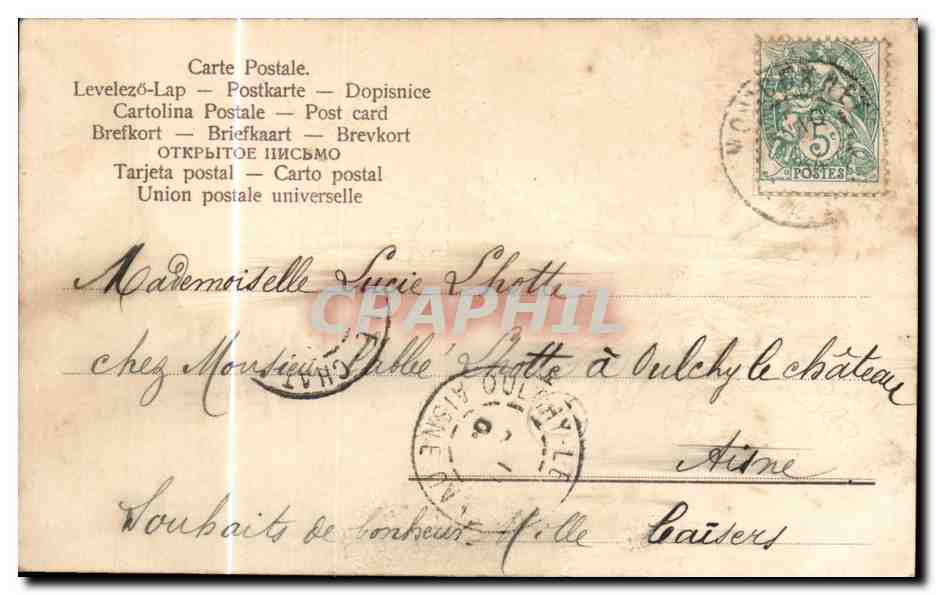 Carte Postale.
Levelező-Lap — Postkarte — Dopisnice
Cartolina Postale — Post card
Brefkort — Briefkaart — Brevkort
ОТКРЫТОЕ ПИСЬМО
Tarjeta postal — Carto postal
Union postale universelle
5c
POSTES
Mademoiselle Lucie Lhotte
CPAPHIL
chez Monsieur l'abbé Lhotte à Oulchy le château
Aisne
OULCHY-LE
AISNE
Souhaits de bonheur Mille Baïsers